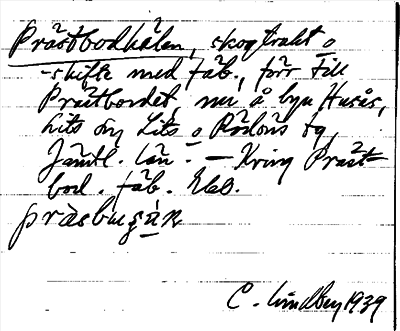 Prästbodkälen, skogtrakt o
-skifte med fäb., förr till
Prästbordet, nu å byn Husås,
Lits sn, Lits o Rödöns tg,
Jämtl. län. — Kring Präst-
bod. fäb. Elab.
C. Lindberg 1939